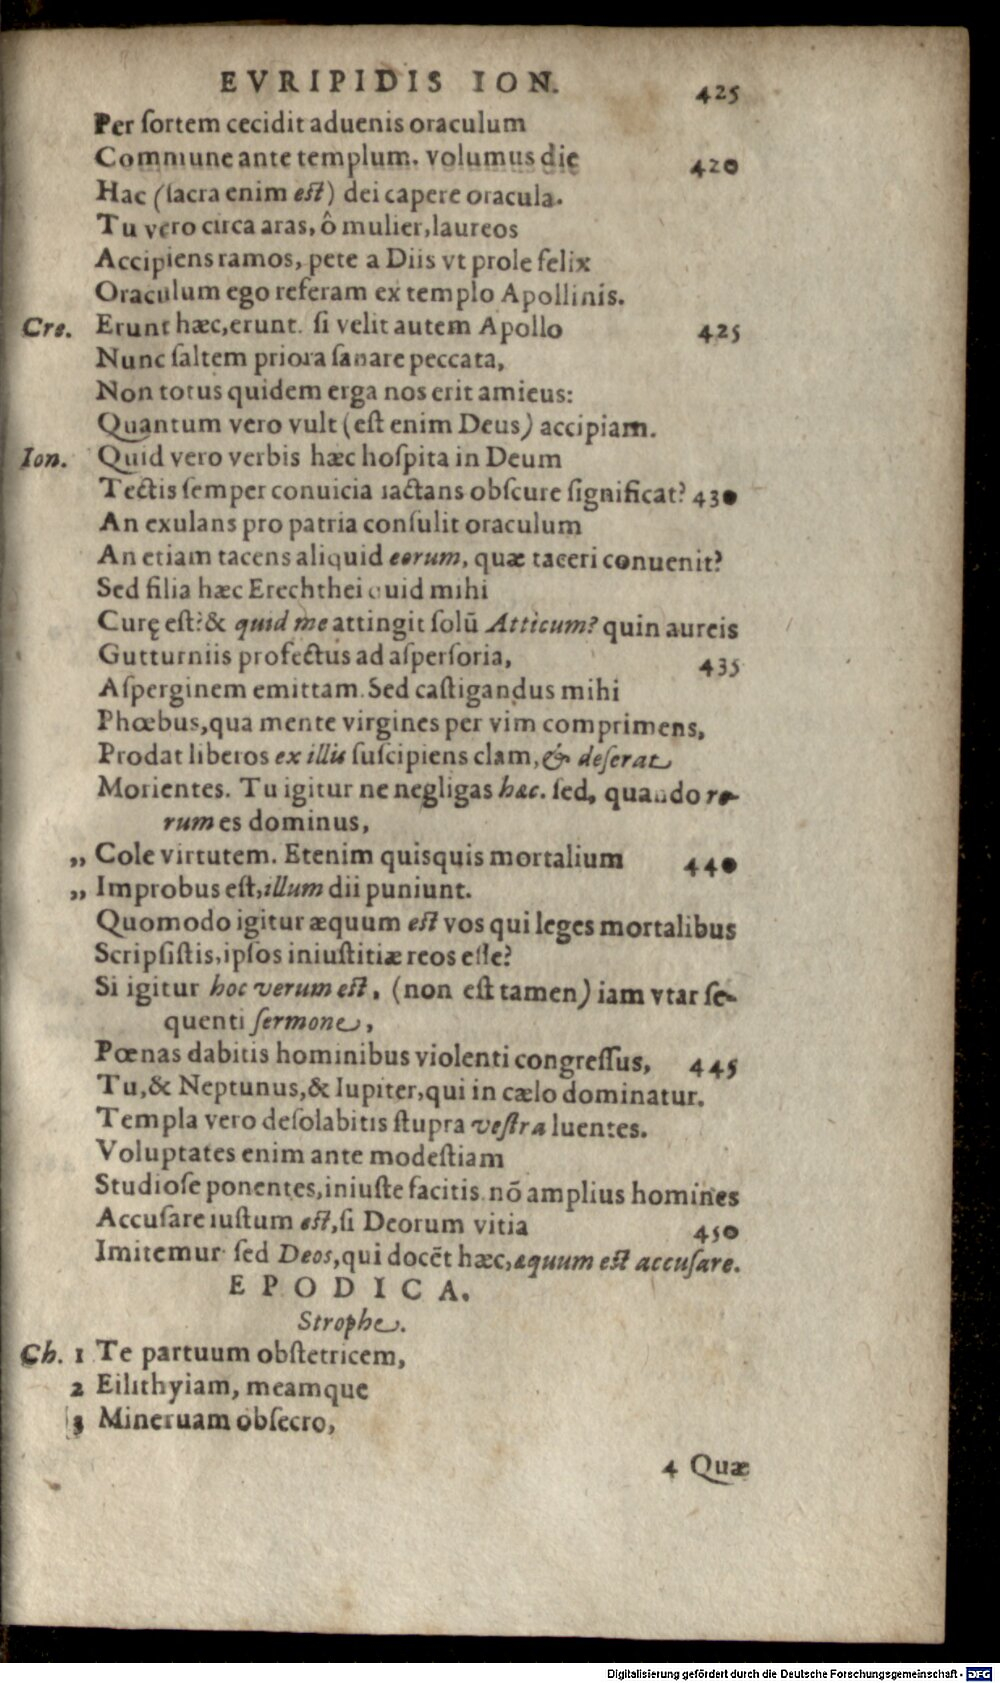 EVRIPIDIS ION. 425
Per ſortem cecidit aduenis oraculum
Commune ante templum. volumus die 420
Hac (ſacra enim est) dei capere oracula.
Tu vero circa aras, ô mulier, laureos
Accipiens ramos, pete a Diis vt prole felix
Oraculum ego referam ex templo Apollinis.
Cre. Erunt hæc, erunt. ſi velit autem Apollo 425
Nunc ſaltem priora ſanare peccata,
Non totus quidem erga nos erit amicus:
Quantum vero vult (eſt enim Deus) accipiam.
Ion. Quid vero verbis hæc hoſpita in Deum
Tectis ſemper conuicia iactans obſcure ſignificat? 430
An exulans pro patria conſulit oraculum
An etiam tacens aliquid eorum, quæ taceri conuenit?
Sed filia hæc Erechthei quid mihi
Curę eſt? & quid me attingit ſolū Atticum? quin aureis
Gutturniis profectus ad aſperſoria, 435
Aſperginem emittam. Sed caſtigandus mihi
Phœbus, qua mente virgines per vim comprimens,
Prodat liberos ex illis ſuſcipiens clam, & deſerat
Morientes. Tu igitur ne negligas hæc. ſed, quando re-
rum es dominus,
„ Cole virtutem. Etenim quisquis mortalium 440
„ Improbus eſt, illum dii puniunt.
Quomodo igitur æquum est vos qui leges mortalibus
Scripſiſtis, ipſos iniuſtitiæ reos eſſe?
Si igitur hoc verum est, (non eſt tamen) iam vtar ſe-
quenti ſermone,
Pœnas dabitis hominibus violenti congreſſus, 445
Tu, & Neptunus, & Iupiter, qui in cælo dominatur.
Templa vero deſolabitis ſtupra veſtra luentes.
Voluptates enim ante modeſtiam
Studioſe ponentes, iniuſte facitis. nō amplius homines
Accuſare iuſtum est, ſi Deorum vitia 450
Imitemur ſed Deos, qui docēt hæc, æquum est accuſare.
EPODICA.
Strophe.
Ch. 1 Te partuum obſtetricem,
2 Eilithyiam, meamque
3 Mineruam obſecro,
4 Quæ
Digitalisierung gefördert durch die Deutsche Forschungsgemeinschaft - DFG